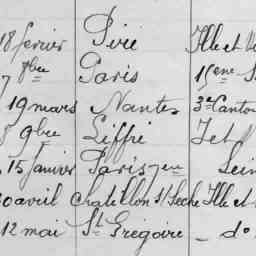 18 février Piré Ille et Vi
7 8bre Paris 15ème S
19 mars Nantes 3e Canto
8 9bre Liffré I et V
15 janvier Paris 7em Sein
30 avril Chatillon s/ Seche Ille et
12 mai St Grégoire - do